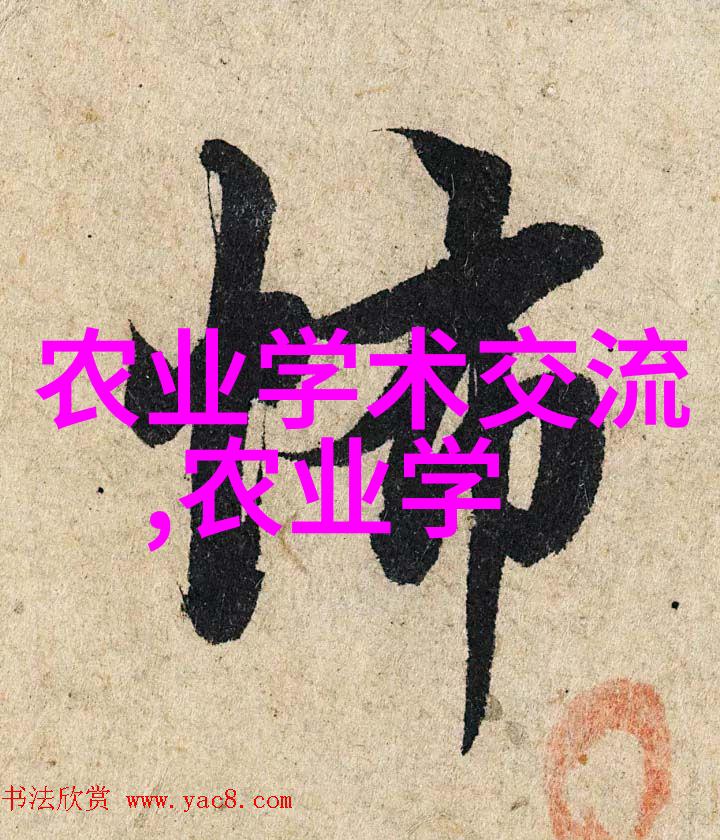 怖
农业学术交流
,农业学
书法欣赏 www.yac8.com